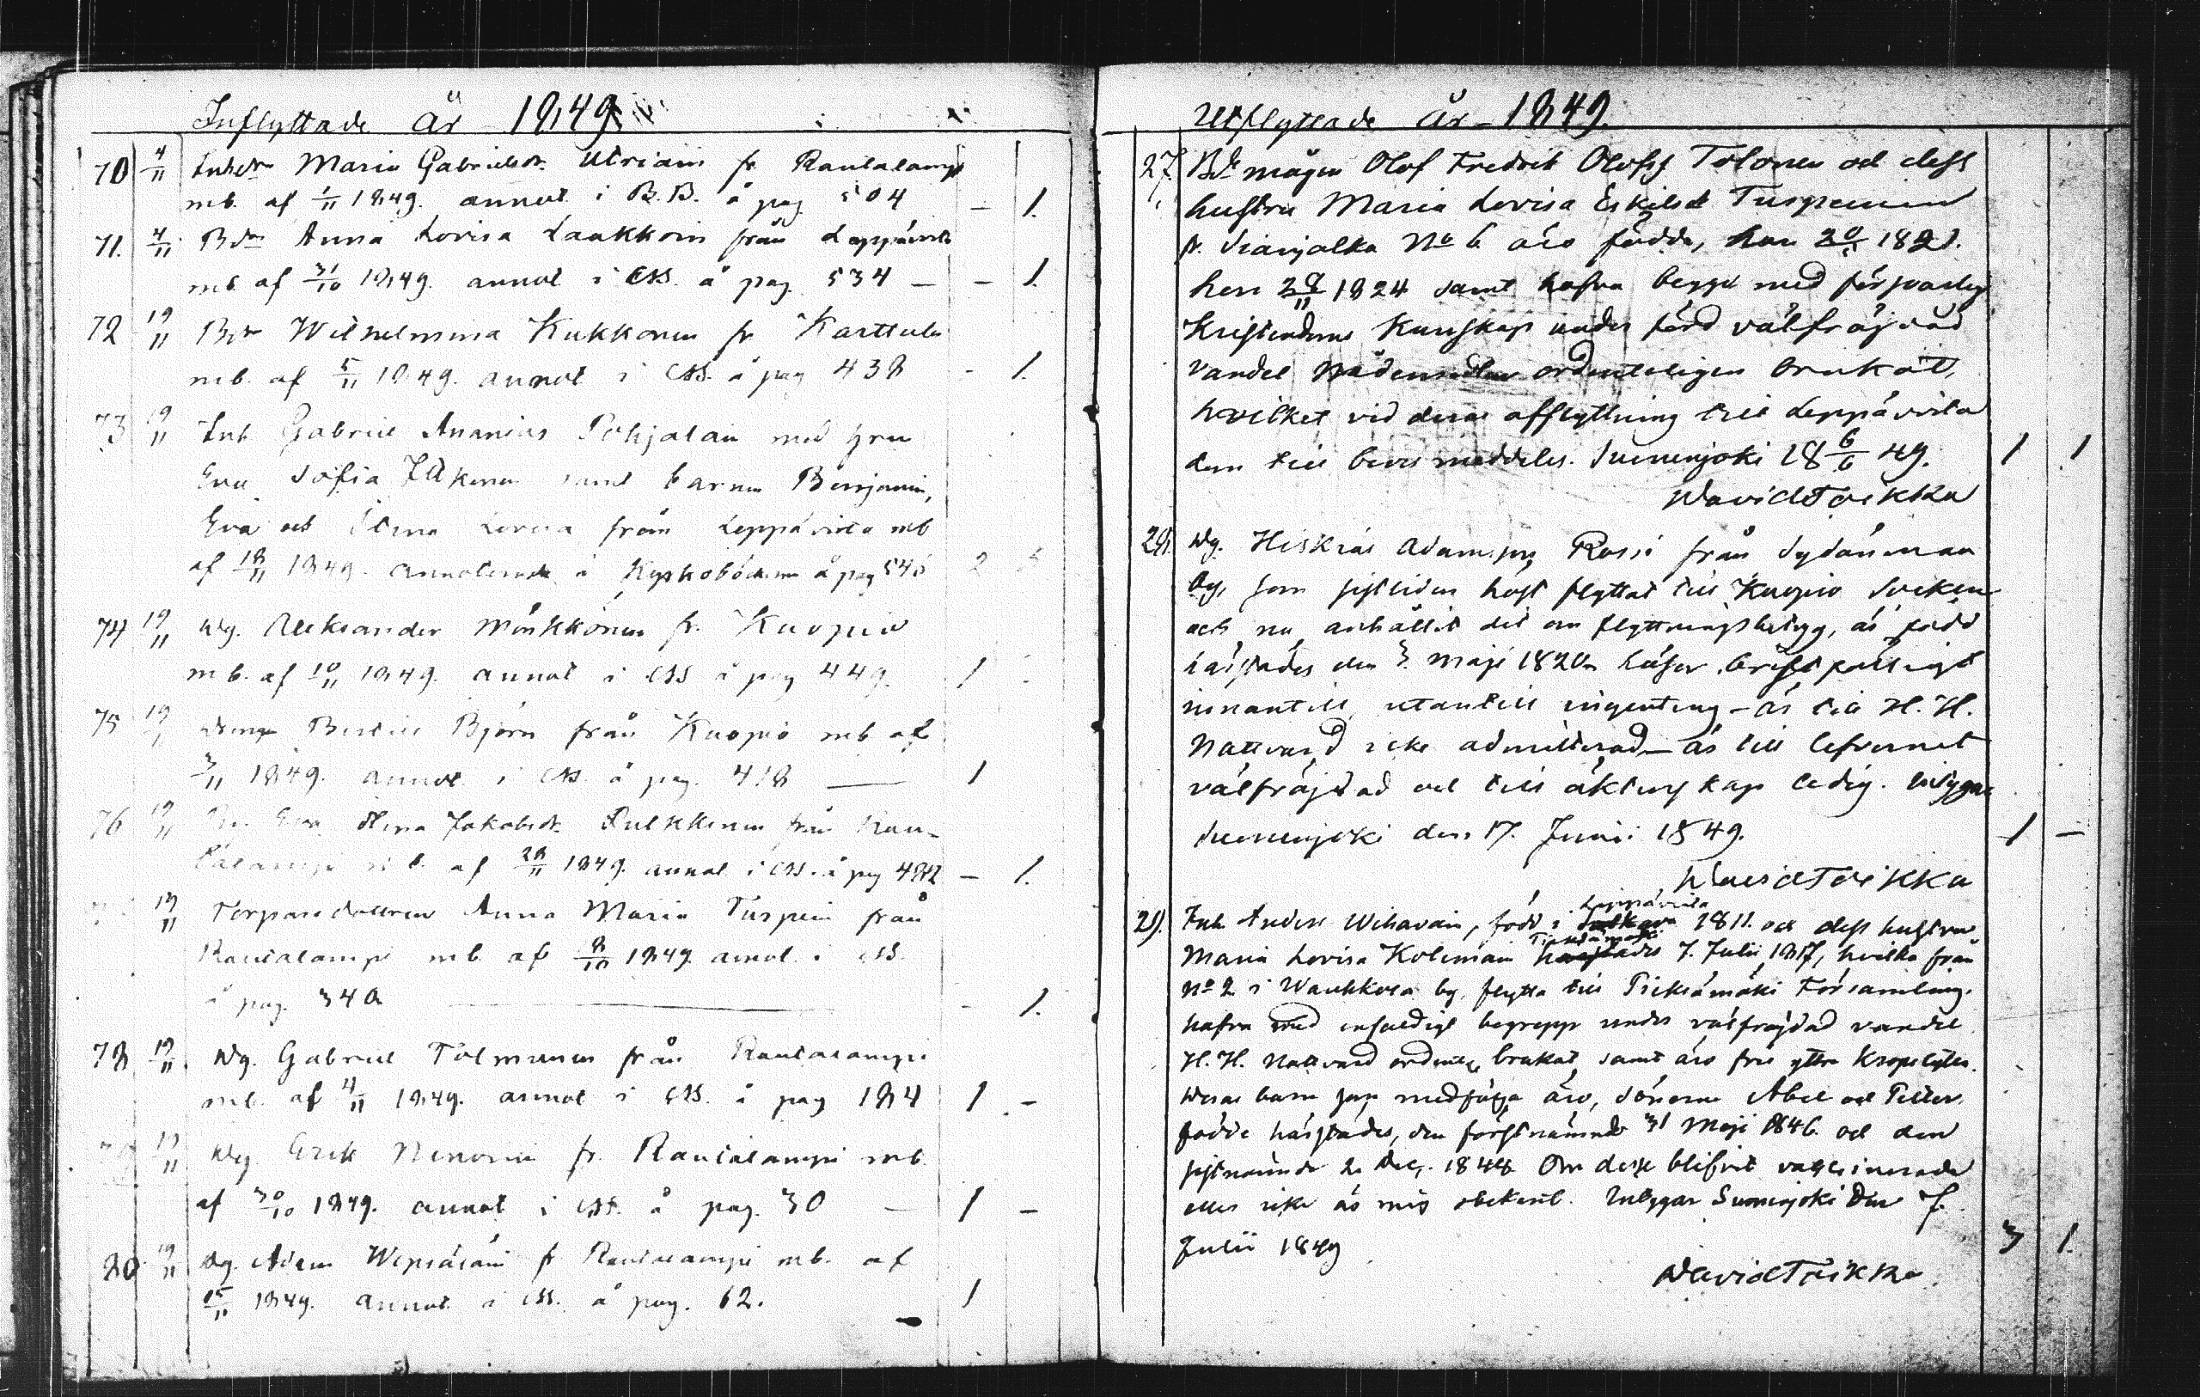 Inflyttade År 1849
70 4/11 Inhdr Maria Gabrielsdr Utriain fr Rautalampi
mb. af 1/11 1849. annot i B.B. å pag. 504 – 1.
71. 4/11 Bdr Anna Lovisa Laukkoin från Leppävirta
mb af 31/10 1849. annot i CSS. å pag. 534 – – 1.
72 19/11 Bdr Wilhelmina Kukkonen fr Karttula
mb. af 5/11 1849. annot i CSS. å pag 438 – 1.
73 19/11 Inh. Gabriel Ananias Pohjalain med hru
Eva Sofia Ikonen samt barnen Benjamin,
Eva och Stina Lovisa från Leppävirta mb
af 18/11 1849. annoterade i Kyrkoböckerna å pag 545 2
74 19/11 Dg. Aleksander Mönkkönen fr. Kuopio
mb. af 10/11 1849. annot i CSS å pag 449. 1 –
75 19/11 Dreng Bertil Björn från Kuopio mb af
3/11 1849. annot. i CSS. å pag. 418 — 1
76 19/11 Eva Stina Jakobsdr Pulkkinen från Rau-
talampi mb. af 28/11 1849. annot i CSS. å pag 482 – 1.
19/11 Torparedottren Anna Maria Turpein från
Rautalampi mb. af 8/10 1849. annot. i CSS.
å pag. 340 — – 1.
78 19/11 Dg. Gabriel Tolmunen från Rautalampi
mb. af 4/11 1849. annot i CSS. å pag 184 1 –
19/11 Dg. Erik Nenonen fr. Rautalampi mb.
af 30/10 1849. annot i CSS. å pag. 30 — 1 –
80 19/11 Dg. Adam Wepsäläin fr Rautalampi mb. af
1849. annot i CSS. å pag. 62. 1 –
Utflyttade År – 1849.
27. Bde mågen Olof Fredrik Olofss Tolonen och dess
hustru Maria Lovisa Eskilsdr Turpeinen
fr. Sianjalka No 6 äro födde, han 1821.
hon 1824 samt hafva begge med försvarlig
Kristendoms Kunskap under förd välfräjdad
vandel Nådemedlen ordenteligen brukat,
hvilket vid deras afflyttning till Leppävirta
dem till bevis meddeles. Suonenjoki 18 6/6 49. 1 1
David Toikka
28. Dg. Hiskias Adamsson Rossi från Sydänmaa
by, som sistliden höst flyttat till Kuopio Socken
och nu anhållit det om flyttningsbetyg, är född
härstädes den 3. Maji 1820. läser bristfälligt
innantill, utantill ingenting – är till H. H.
Nattvard icke admitterad – är till lefvernet
välfräjdad och till äktenskap ledig. betygar
Suonenjoki den 17. Junii 1849. 1 –
David Toikka
29. Inh Anders Wihavain, född i Leppävirta 1811. och dess hustru
Maria Lovisa Kolimain 7. Julii 1817, hvilka från
No 2 i Waukkola by, flytta till Pieksämäki Församling.
hafva med enfaldigt begrepp under välfräjdad vandel
H. H. Nattvard ordentl. brukat, samt äro fria yttre kropslytes.
Deras barn som medfölja äro, sönerne Abel och Petter
födde härstädes, den förstnämnde 31 Maji 1846. och den
sistnämnde 2. Dec. 1848. Om desse blifvit vaccinerade
eller icke är mig obekant. Intygar Suonenjoki den 7.
Julii 1849 3 1.
David Toikka